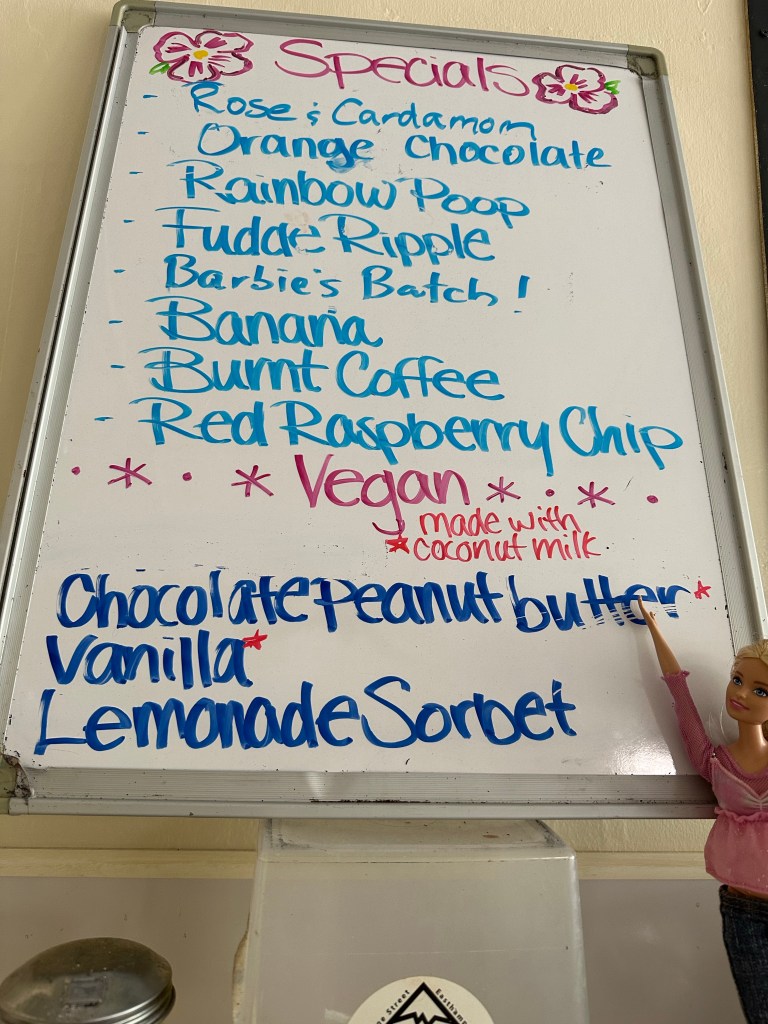 Specials
- Rose & Cardamom
- Orange Chocolate
- Rainbow Poop
- Fudge Ripple
- Barbie's Batch!
- Banana
- Burnt Coffee
- Red Raspberry Chip
Vegan
* made with
coconut milk
Chocolate Peanut butter*
Vanilla*
Lemonade Sorbet
Street